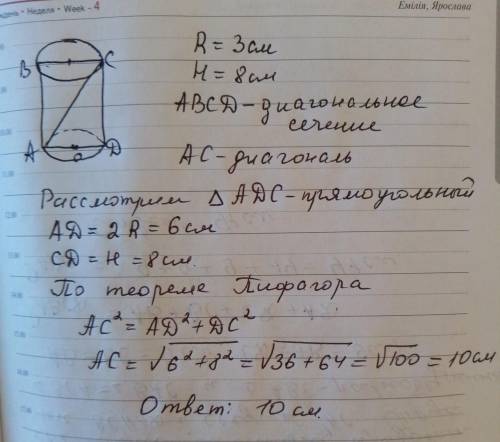 Неділя • Week - 4
Емілія, Ярослава
B C
A O D
R = 3см
H = 8см
ABCD - диагональное
сечение
AC - диагональ
Рассмотрим △ ADC - прямоугольный
AD = 2R = 6см
CD = H = 8см
По теореме Пифагора
AC² = AD² + DC²
AC = √6²+8² = √36+64 = √100 = 10см
Ответ: 10 см.